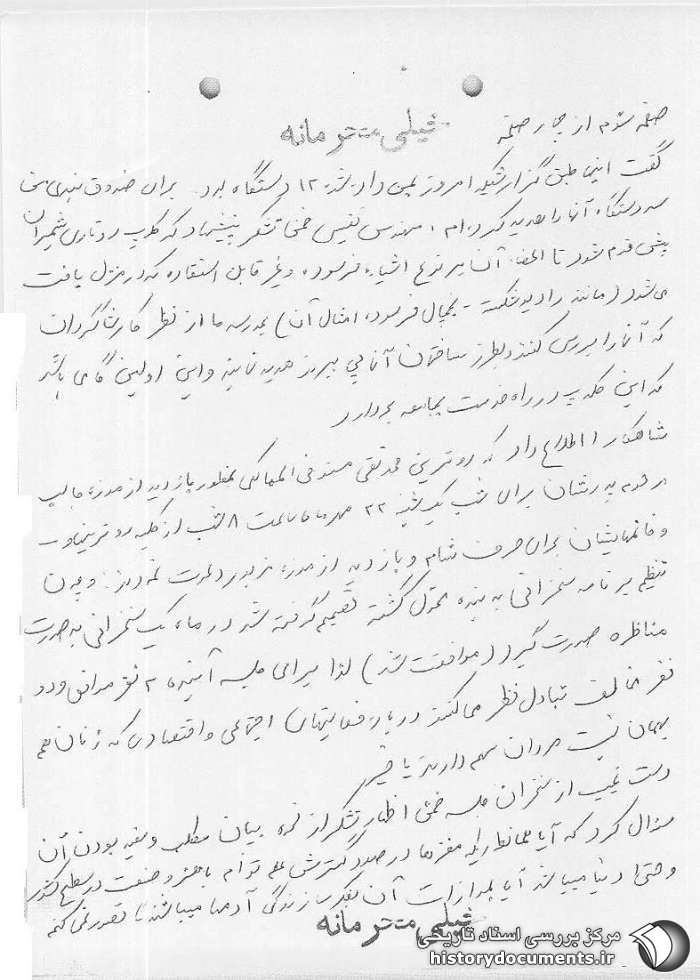 صفحه سوم از چهار صفحه
خیلی محرمانه
گفت این طبق گزارشیکه امروز بمن دادند ۱۲ دستگاه بود. برای صندوق
سه دستگاه آنرا هدیه کرده‌ام. مهندس نفیس ضمن تشکر پیشنهاد کرد کلوپ روتاری شمیران
پیش قدم شود تا اعضاء آن هر نوع اشیاء فرسوده و غیر قابل استفاده که در منزل یافت
می‌شود (مانند رادیو شکسته - یخچال فرسوده و امثال آن) بمدرسه ما از نظر کار شاگردان
که آنرا بررسی کنند و بطرز ساختمان آن پی ببرند هدیه نمایند و این اولین گامی باشد
که این کلوپ در راه خدمت بجامعه بردارد
شاهکار اطلاع داد که روترین محمد تقی مستوفی الممالکی بمنظور بازدید از موزه جالب
مرحوم پدرشان برای شب یکشنبه ۲۲ مهرماه ساعت ۸ شب از کلیه روترینها و
و خانمهایشان برای صرف شام و بازدید از موزه مزبور دعوت نمودند. و چون
تنظیم برنامه سخنرانی به بنده محول گشته تصمیم گرفته شد در ماه یک سخنرانی به صورت
مناظره صورت گیرد (موافقت شد) لذا برای جلسه آینده ۲ نفر موافق و دو
نفر مخالف تبادل نظر می‌کنند درباره فعالیتهای اجتماعی و اقتصادی که زنان هم
بهمان نسبت مردان سهم دارند یا خیر
دست غیب از سخنران جلسه ضمن اظهار تشکر از نحوه بیان مطلب و مفید بودن آن
سوال کرد که آیا همانطوریکه مغزها در صدد گسترش علم توأم با هنر و صنعت در سطح کشور
و حتی دنیا میباشد آیا بموازات آن بفکر سازندگی آدمها میباشند؟ تصور نمی کنم
خیلی محرمانه
مرکز بررسی اسناد تاریخی
historydocuments.ir